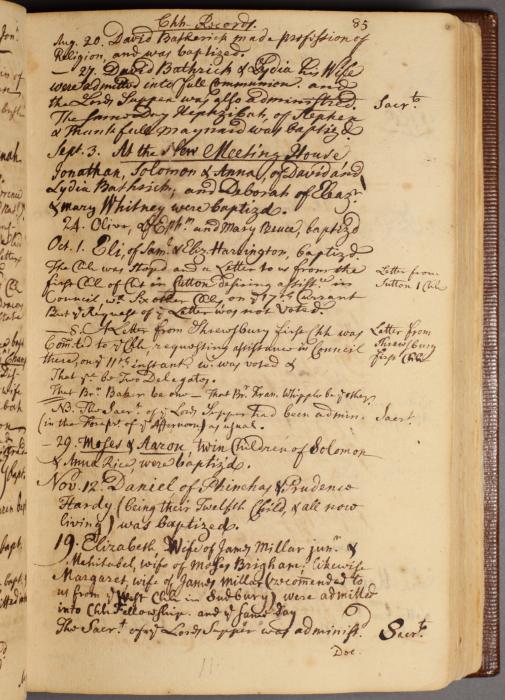 Chh Records. 85
Aug. 20. David Batherick made profession of
Religion, and was baptized.
— 27. David Bathrick & Lydia his Wife
were admitted into full Communion. and
the Lords Supper was also administred. Sacrt.
The same Day Hephzibah, of Stephen
& Thankfull Maynard was baptizd
Sept. 3. At the New Meeting House
Jonathan, Solomon & Anna, of David and
Lydia Batherick, and Deborah of Eleazr.
& Mary Whitney were baptizd.
24. Oliver, of Ephm. and Mary Beuce, baptizd
Oct. 1. Eli, of Saml. & Eliz. Harrington, baptizd.
The Chh was stayed and a Letter to us from the Letter from
first Chh of Cht in Sutton desiring assistce in Sutton 1 Chh
Council, wth other Chhs, on ye 17th Currant
But ye Request of ye Letter was not Voted.
— 8. A Letter from Shrewsbury first Chh was Letter from
Comtted to ye Chh, requesting assistance in Council Shrewsbury
there, on ye 11th instant, was voted & first Chh
That yre be Two Delegates.
That Br. Baker be one — That Br. Fran. Whipple be ye other.
NB. The Sacrt. of ye Lords Supper had been admin. Sacrt.
(in the Forept. of ye Afternoon) as usual.
— 29. Moses & Aaron twin Children of Solomon
& Anna Rice, were baptizd.
Nov. 12. Daniel of Phinehas & Prudence
Hardy (being their Twelfth Child, & all now
living) was baptized.
19. Elizabeth Wife of James Millar junr. &
Mehitabel, wife of Moses Brigham: likewise
Margaret, wife of James Millar (recomended to
us from ye West Chh in Sudbury) were admitted
into Chh Fellowship. and ye same day
The Sacrt. of ye Lords Supper was administ. Sacrt.
Dec.